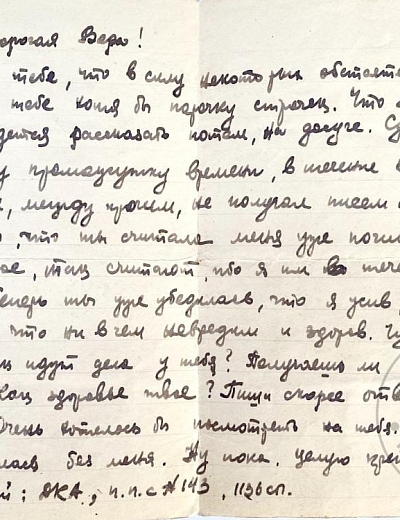 орогая Вера!
тебе, что в силу некоторых обстояте
тебе хотя бы парочку строчек. Что
дется рассказать потом, на досуге. С
у промежутку времени, в течение
, между прочим, не получал писем
, что ты считала меня уже погиб
ое, так считают, ибо я им в тече
Теперь ты уже убедилась, что я жив,
что ни в чем невредим и здоров.
к идут дела у тебя? Получаешь ли
Как здоровье твое? Пиши скорее отв
Очень хотелось бы посмотреть на тебя.
лась без меня. Ну пока. Целую кре
й: ДКА, п.п.с №143, 1136сп.